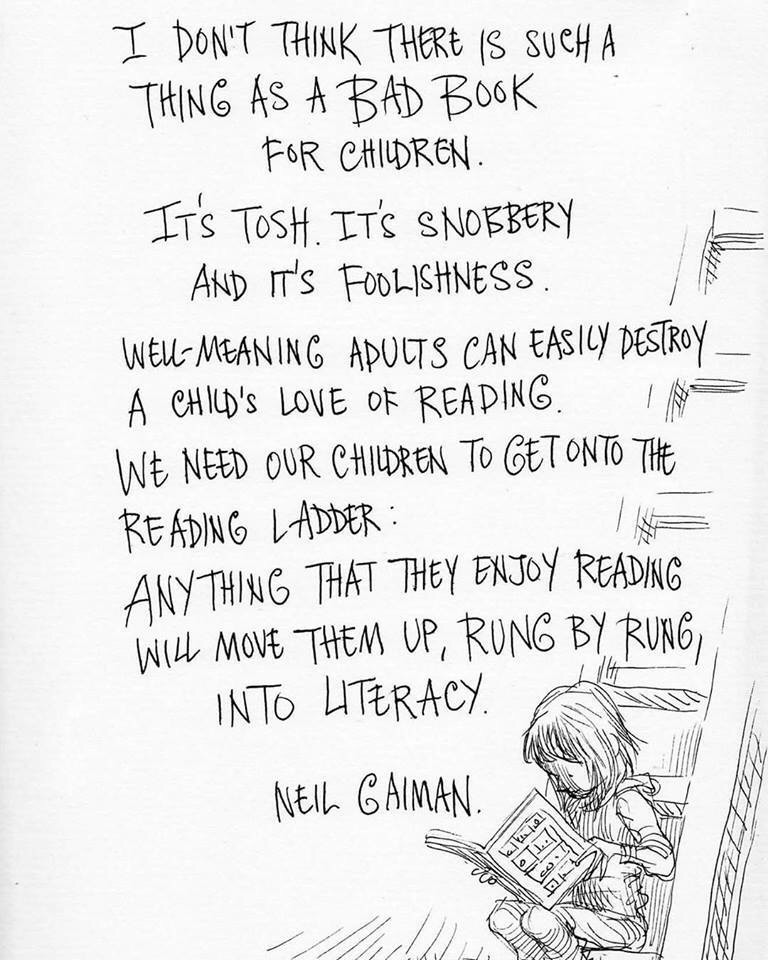 I DON'T THINK THERE IS SUCH A
THING AS A BAD BOOK
FOR CHILDREN.
IT'S TOSH. IT'S SNOBBERY
AND IT'S FOOLISHNESS.
WELL-MEANING ADULTS CAN EASILY DESTROY
A CHILD'S LOVE OF READING.
WE NEED OUR CHILDREN TO GET ONTO THE
READING LADDER:
ANYTHING THAT THEY ENJOY READING
WILL MOVE THEM UP, RUNG BY RUNG,
INTO LITERACY.
NEIL GAIMAN.